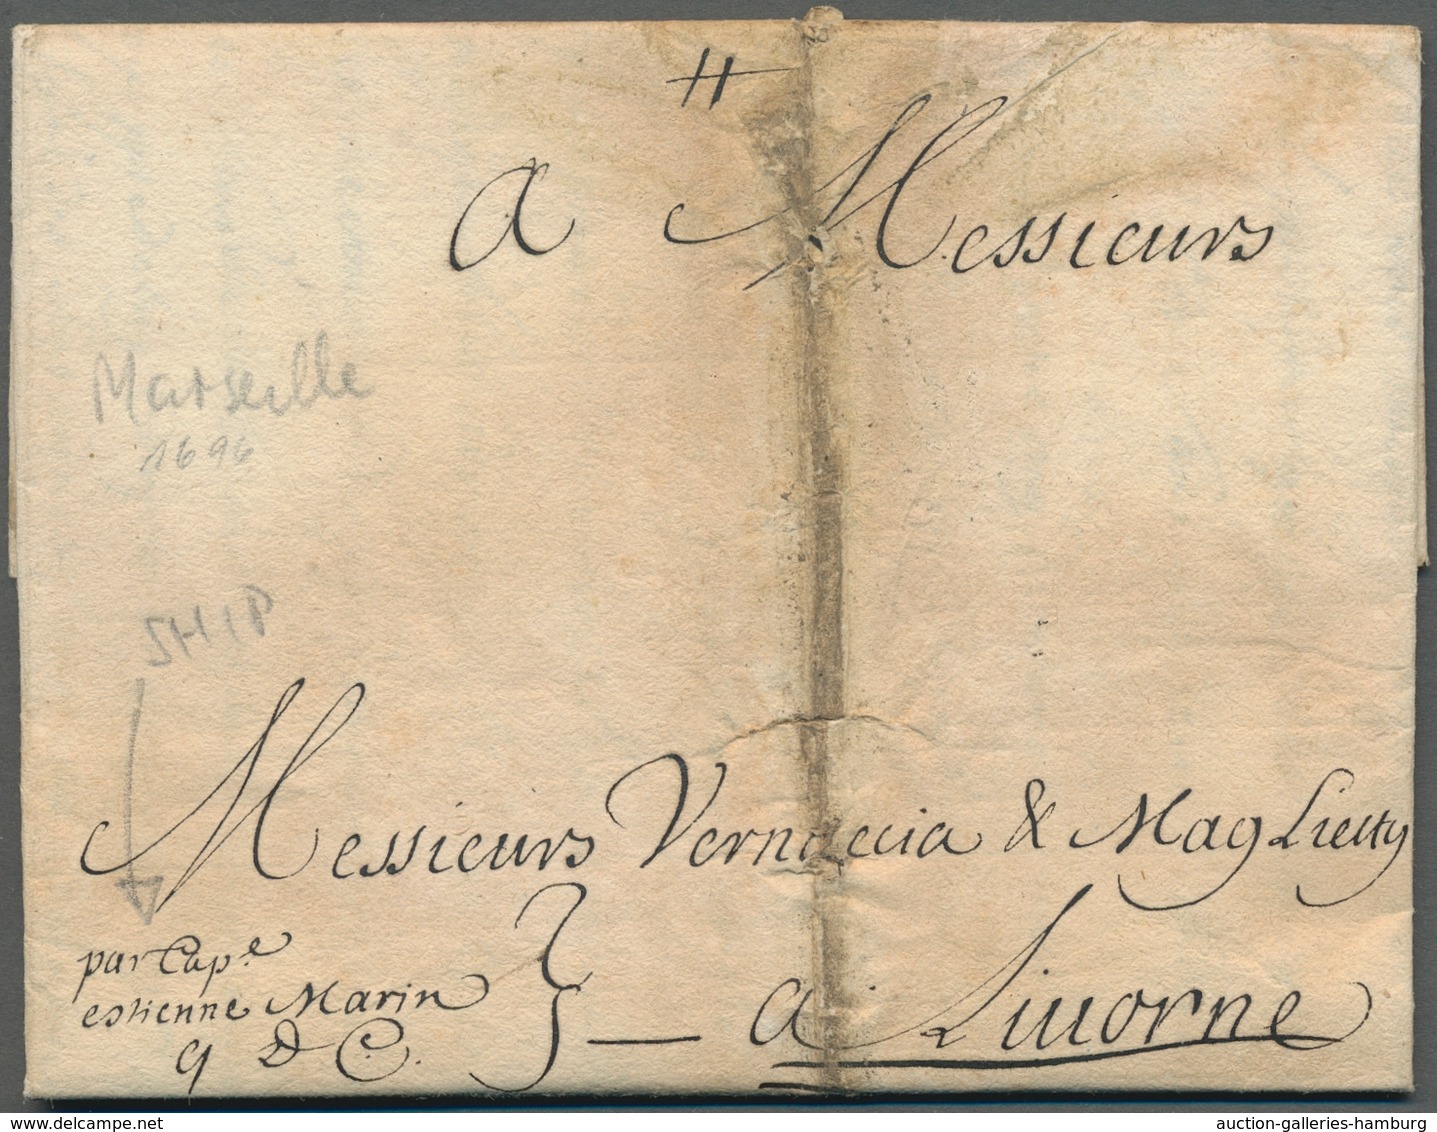 H
a Messieurs
Marseille
1696
SHIP
Messieurs Vernaccia & Mag Lietty
par Cap.e
estienne Marin
q D C.
a Liuorne
www.delcampe.net
auction-galleries-hamburg